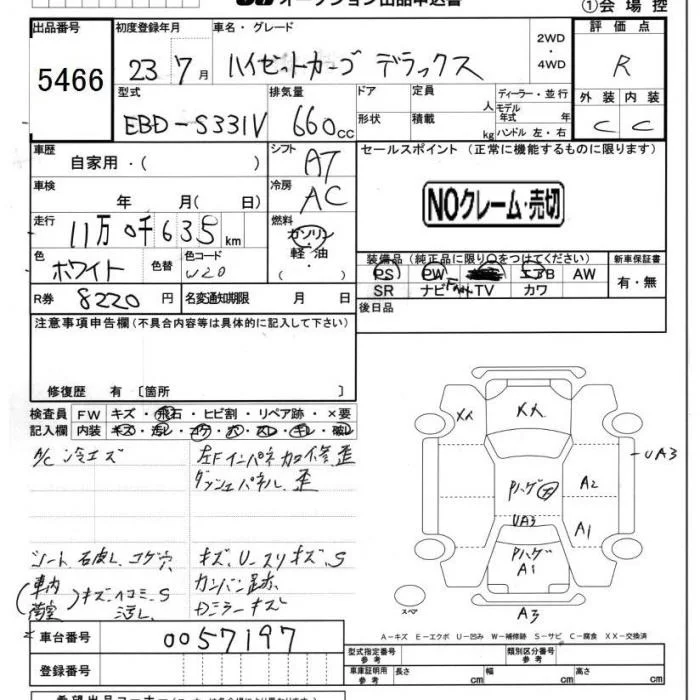 オークション出品申込書
①会場控
出品番号
5466
初度登録年月
23 7月
車名・グレード
ハイゼットカーゴ デラックス
2WD
・
4WD
評価点
R
型式
EBD-S331V
排気量
660cc
ドア
形状
定員
人
積載
kg
ディーラー・並行
モデル年式 年
ハンドル 左・右
外装 内装
C C
車歴
自家用・( )
シフト
AT
セールスポイント(正常に機能するものに限ります)
車検
年 月( 日)
冷房
AC
NOクレーム・売切
走行
11万0千635km
燃料
ガソリン
軽油
・
( )
色
ホワイト
色替
色コード
W20
装備品(純正品に限り○をつけてください)
PS PW エアB AW
SR ナビ TV カワ
新車保証書
有・無
R券
8220円
名変通知期限 月 日
後日品
注意事項申告欄(不具合内容等は具体的に記入して下さい)
修復歴 有〔箇所 〕
検査員
記入欄
FW キズ・飛石・ヒビ割・リペア跡・×要
内装 キズ・汚レ・コゲ・穴・スレ・キレ・破レ
A/C 冷エズ
左Fインパネ カコイ修、歪
ダッシュパネル、歪
シート 石皮レ、コゲ穴
キズ、U-スリキズ、S
(車内 荷室)キズ、ヘコミ、S
汚レ、
カンバン跡
Dミラーキズ
XX
XX
UA3
A2
Pハゲ
UA3
A1
Pハゲ
A1
スペア
A3
A-キズ E-エクボ U-凹み W-補修跡 S-サビ C-腐食 XX-交換済
車台番号
0057197
型式指定番号
参考
類別区分番号
参考
登録番号
車庫証明用
参考
長さ cm
幅 cm
高さ cm